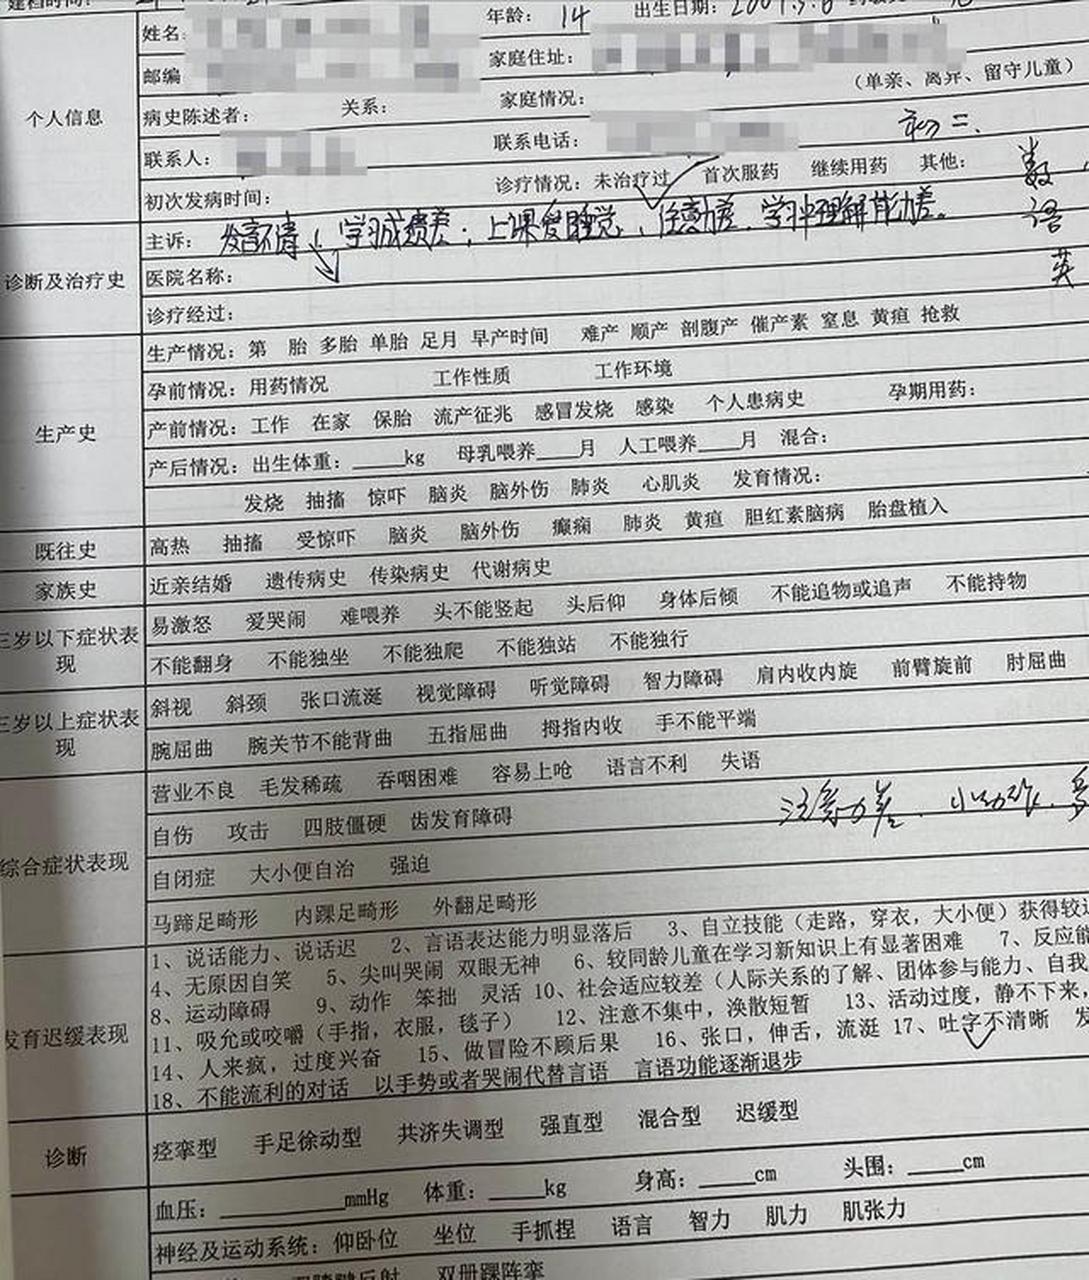 建档时间:
姓名: 年龄: 14 出生日期:
邮编 家庭住址:
个人信息 病史陈述者: 关系: 家庭情况: (单亲、离异、留守儿童)
联系人: 联系电话: 初二.
初次发病时间: 诊疗情况: 未治疗过 首次服药 继续用药 其他: 数
主诉: 发音不清 学习成绩差; 上课爱睡觉、 学习中理解能力差。 语
诊断及治疗史 医院名称: 英
诊疗经过:
生产情况: 第 胎 多胎 单胎 足月 早产时间 难产 顺产 剖腹产 催产素 窒息 黄疸 抢救
孕前情况: 用药情况 工作性质 工作环境
生产史 产前情况: 工作 在家 保胎 流产征兆 感冒发烧 感染 个人患病史 孕期用药:
产后情况: 出生体重: ____kg 母乳喂养____月 人工喂养____月 混合:
发烧 抽搐 惊吓 脑炎 脑外伤 肺炎 心肌炎 发育情况:
既往史 高热 抽搐 受惊吓 脑炎 脑外伤 癫痫 肺炎 黄疸 胆红素脑病 胎盘植入
家族史 近亲结婚 遗传病史 传染病史 代谢病史
三岁以下症状表 易激怒 爱哭闹 难喂养 头不能竖起 头后仰 身体后倾 不能追物或追声 不能持物
现 不能翻身 不能独坐 不能独爬 不能独站 不能独行
三岁以上症状表 斜视 斜颈 张口流涎 视觉障碍 听觉障碍 智力障碍 肩内收内旋 前臂旋前 肘屈曲
现 腕屈曲 腕关节不能背曲 五指屈曲 拇指内收 手不能平端
营业不良 毛发稀疏 吞咽困难 容易上呛 语言不利 失语
自伤 攻击 四肢僵硬 齿发育障碍 注意力差、小动作多
综合症状表现 自闭症 大小便自治 强迫
马蹄足畸形 内踝足畸形 外翻足畸形
1、说话能力、说话迟 2、言语表达能力明显落后 3、自立技能(走路,穿衣,大小便)获得较迟
4、无原因自笑 5、尖叫哭闹 双眼无神 6、较同龄儿童在学习新知识上有显著困难 7、反应能
8、运动障碍 9、动作 笨拙 灵活 10、社会适应较差(人际关系的了解、团体参与能力、自我
发育迟缓表现 11、吸允或咬嚼(手指,衣服,毯子) 12、注意不集中,涣散短暂 13、活动过度,静不下来,
14、人来疯,过度兴奋 15、做冒险不顾后果 16、张口,伸舌,流涎 17、吐字不清晰 发
18、不能流利的对话 以手势或者哭闹代替言语 言语功能逐渐退步
诊断 痉挛型 手足徐动型 共济失调型 强直型 混合型 迟缓型
血压: ________mmHg 体重: ____kg 身高: ____cm 头围: ____cm
神经及运动系统: 仰卧位 坐位 手抓捏 语言 智力 肌力 肌张力
双踝阵挛